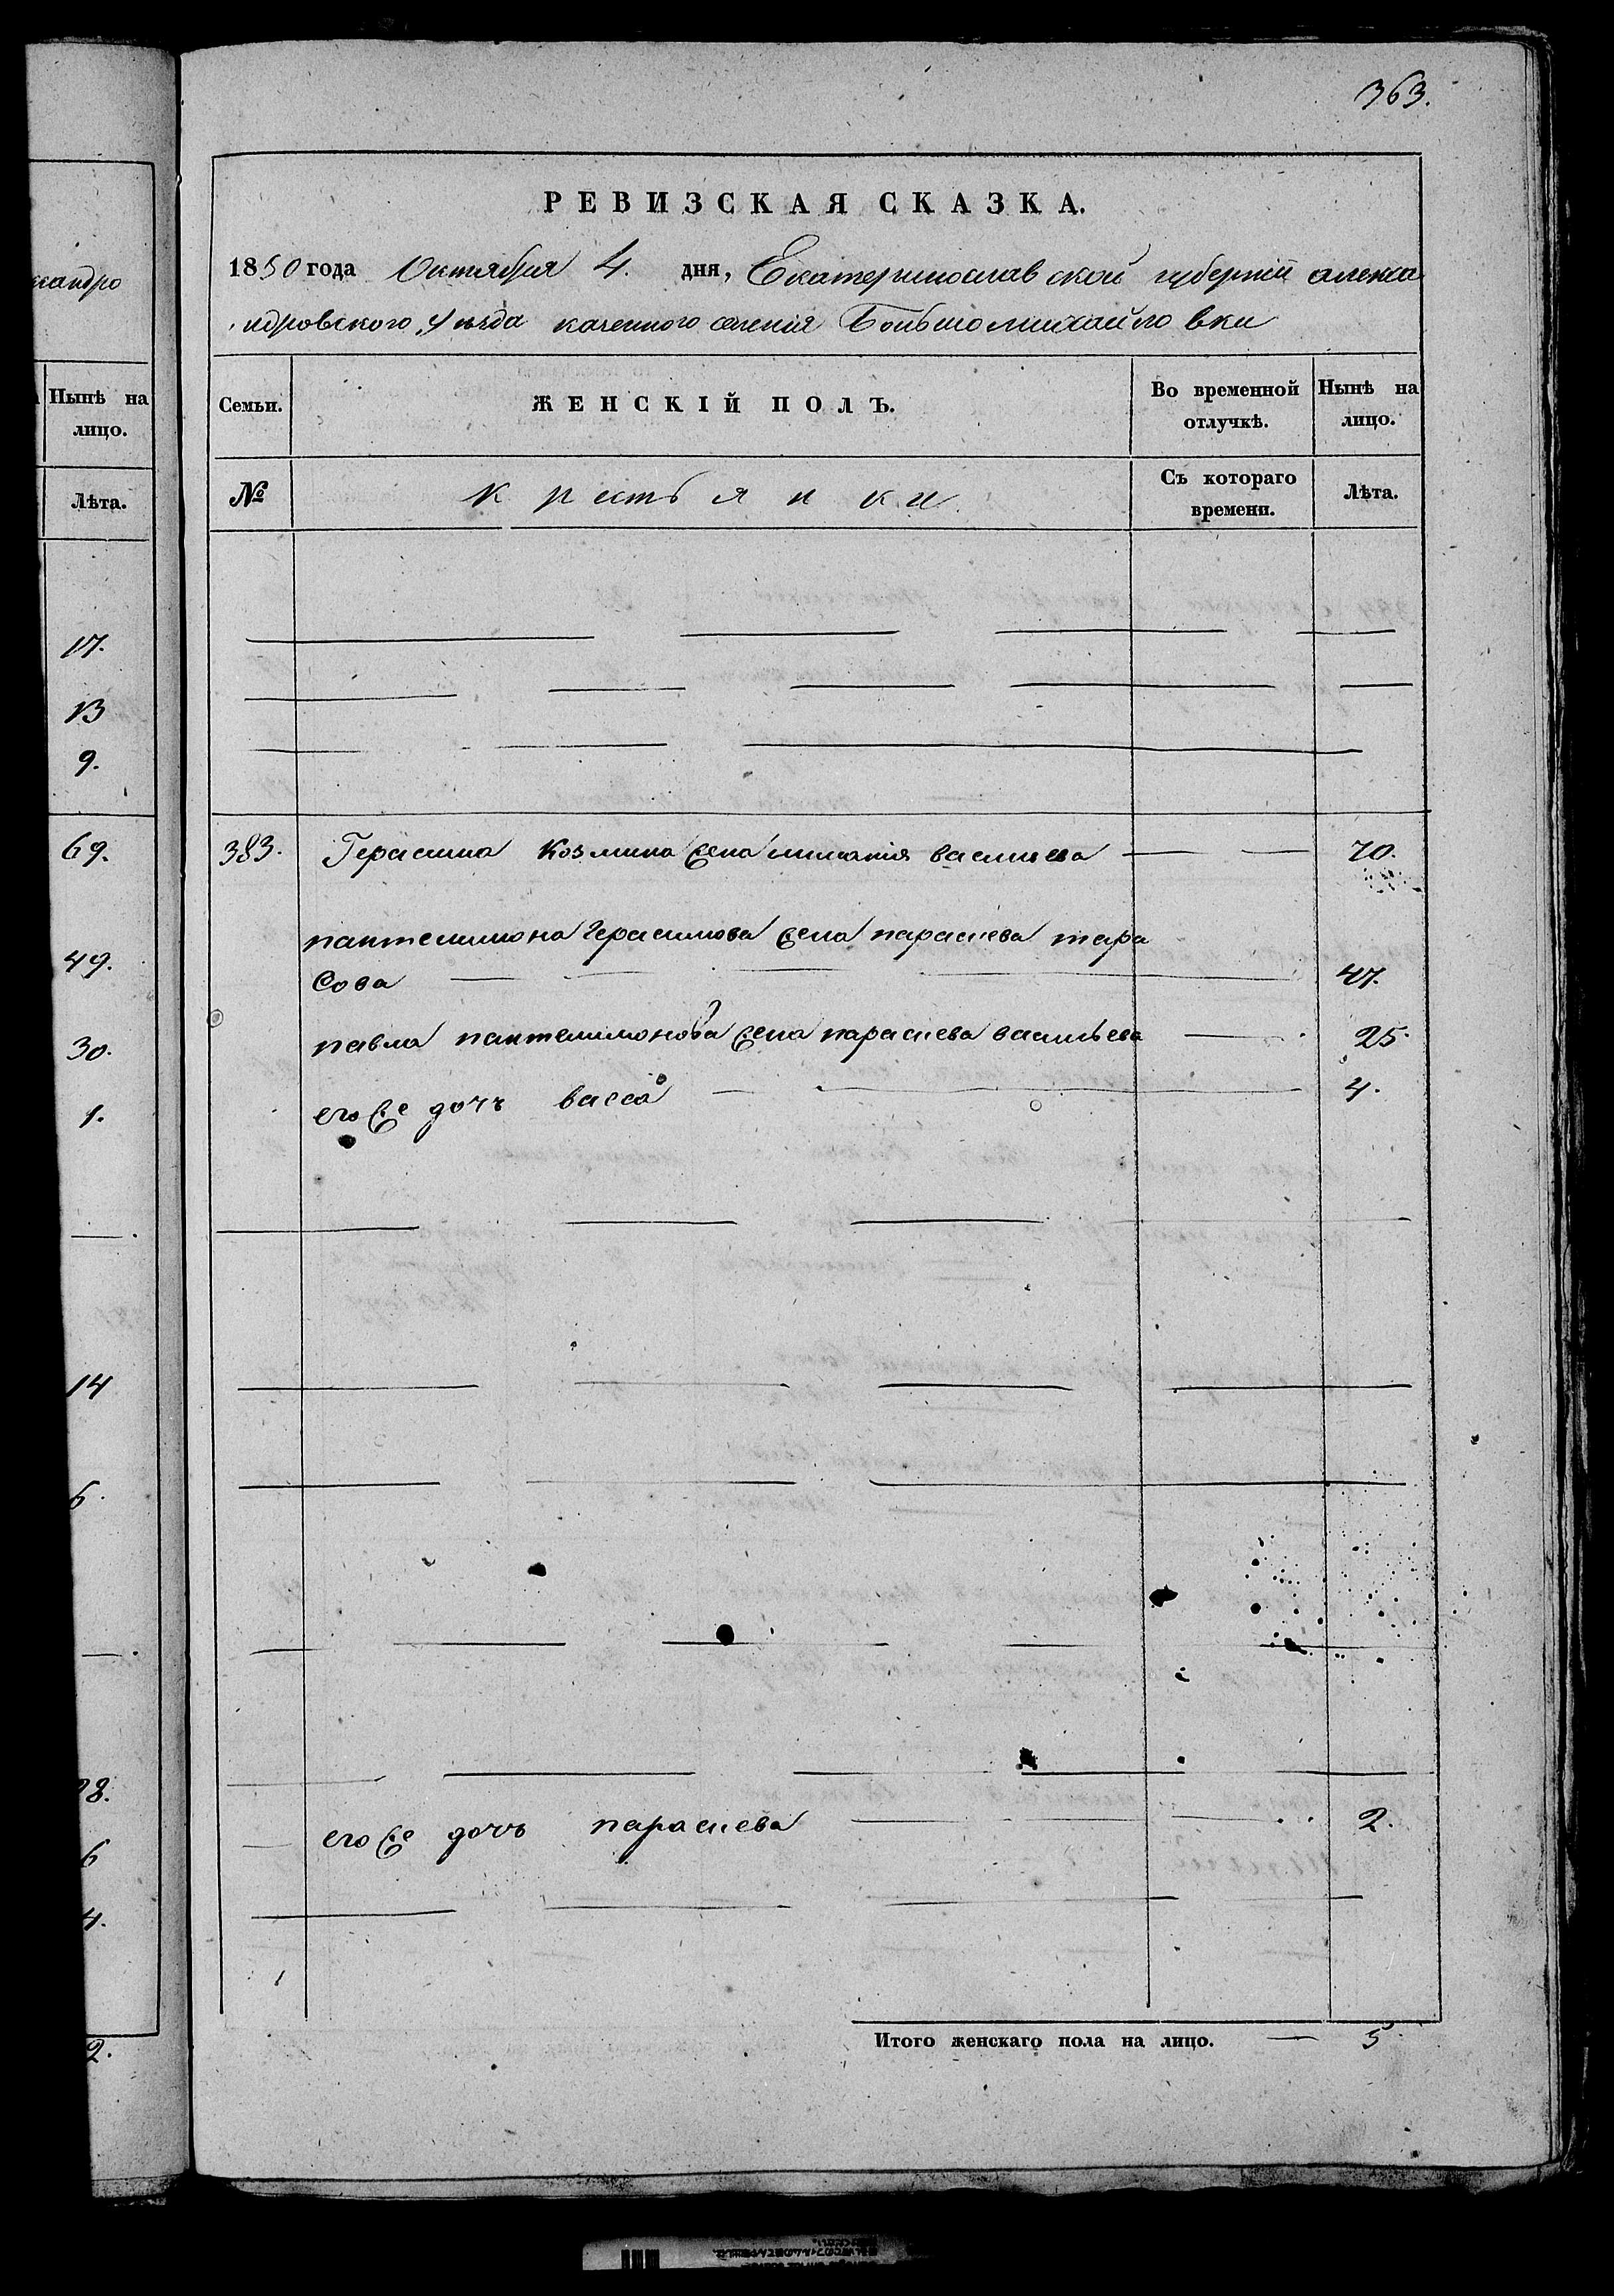 ксандро
Нынѣ на
лицо.
Лѣта.
17.
13
9.
69.
49.
30.
1.
14
6.
8.
6
4.
2.
363.
РЕВИЗСКАЯ СКАЗКА.
1850 года Октября 4. дня, Екатеринославской губернiи алекса
ндровского уѣзда казенного селенiя Большомихайловки
Семьи.
ЖЕНСКIЙ ПОЛЪ.
Во временной
отлучкѣ.
Нынѣ на
лицо.
№
крестьянки
Съ котораго
времени.
Лѣта.
383. Герасима Козмина жена васильева 70.
пантелимона Герасимова жена параскева тара
сова 47.
павла пантелимонова жена параскева васильева 25.
его же дочь васса 4.
его же дочь параскева 2.
Итого женскаго пола на лицо. 5